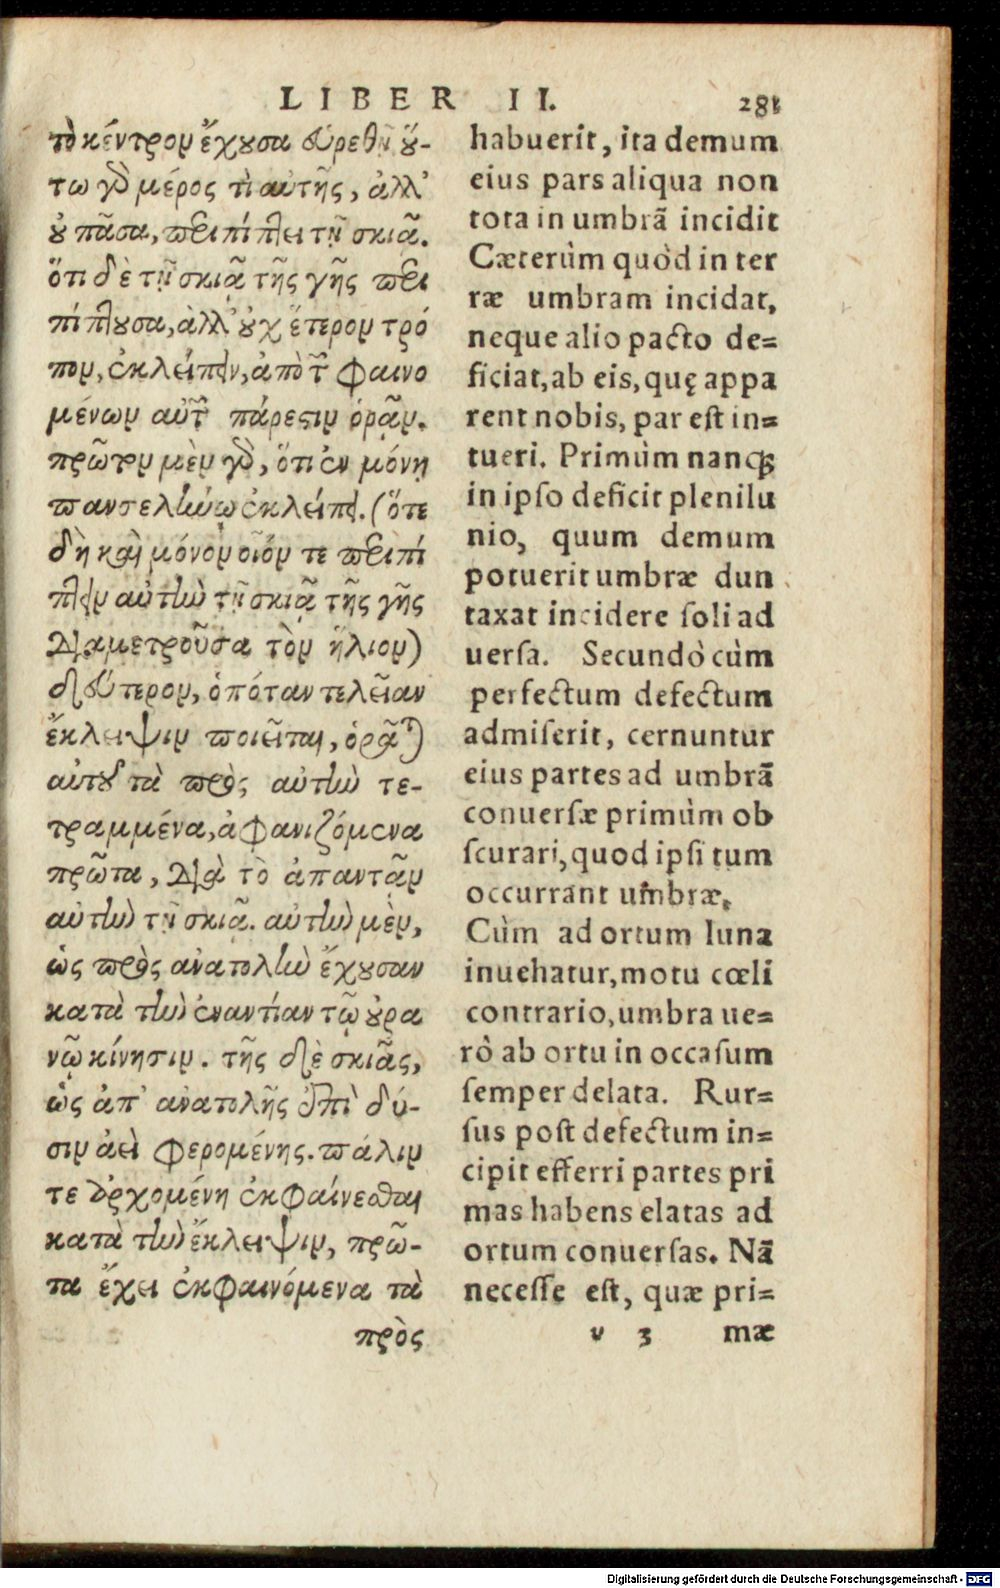 LIBER II. 281
τὸ κέντρον ἔχουσα εὑρεθῇ οὕ-
τω γὰρ μέρος τὶ αὐτῆς, ἀλλ'
οὐ πᾶσα, περιπίπτει τῇ σκιᾷ.
ὅτι δὲ τῇ σκιᾷ τῆς γῆς περι
πίπτουσα, ἀλλ' οὐχ ἕτερον τρό
πον, ἐκλείπειν, ἀπὸ τῶν φαινο
μένων αὐτῶν πάρεστιν ὁρᾷν.
πρῶτον μὲν γὰρ, ὅτι ἐν μόνῃ
πανσελήνῳ ἐκλείπει. (ὅτε
δὴ καὶ μόνον οἷόν τε περιπί
πτειν αὐτὴν τῇ σκιᾷ τῆς γῆς
διαμετροῦσα τὸν ἥλιον)
δεύτερον, ὁπόταν τελείαν
ἔκλειψιν ποιεῖται, ὁρᾶται
αὐτοῦ τὰ πρὸς αὐτὴν τε-
τραμμένα, ἀφανιζόμενα
πρῶτα, διὰ τὸ ἀπαντᾷν
αὐτὴν τῇ σκιᾷ. αὐτὴν μὲν,
ὡς πρὸς ἀνατολὴν ἔχουσαν
κατὰ τὴν ἐναντίαν τῷ οὐρα
νῷ κίνησιν. τῆς δὲ σκιᾶς,
ὡς ἀπ' ἀνατολῆς ἐπὶ δύ-
σιν ἀεὶ φερομένης. πάλιν
τε ἀρχομένη ἐκφαίνεσθαι
κατὰ τὴν ἔκλειψιν, πρῶ-
τα ἔχει ἐκφαινόμενα τὰ
πρὸς
habuerit, ita demum
eius pars aliqua non
tota in umbrã incidit
Cæterùm quòd in ter
ræ umbram incidat,
neque alio pacto de=
ficiat, ab eis, quę appa
rent nobis, par est in=
tueri. Primùm nanq;
in ipso deficit plenilu
nio, quum demum
potuerit umbræ dun
taxat incidere soli ad
uersa. Secundò cùm
perfectum defectum
admiserit, cernuntur
eius partes ad umbrã
conuersæ primùm ob
scurari, quod ipsi tum
occurrant umbræ.
Cùm ad ortum luna
inuehatur, motu cœli
contrario, umbra ue=
rò ab ortu in occasum
semper delata. Rur=
sus post defectum in=
cipit efferri partes pri
mas habens elatas ad
ortum conuersas. Nã
necesse est, quæ pri=
v 3 mæ
Digitalisierung gefördert durch die Deutsche Forschungsgemeinschaft - DFG